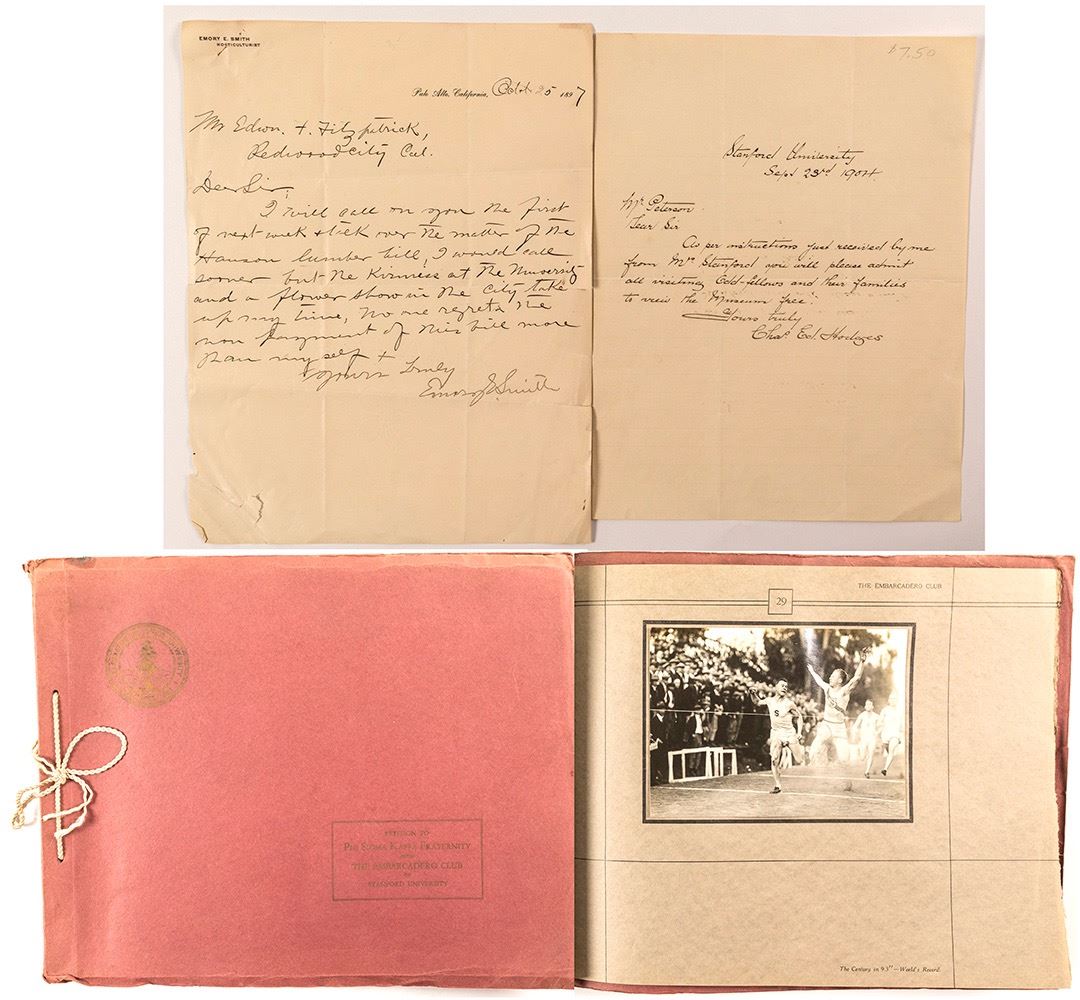 EMORY E. SMITH
HORTICULTURIST
Palo Alto, California, Oct 25 1897
Mr Edwn. F. Fitzpatrick,
Redwood City Cal.
Dear Sir;
I will call on you the first
of next week & talk over the matter of the
Hanson lumber bill, I would call
sooner but the at the University
and a flower show in the city take
up my time, No one regrets the
non payment of this bill more
than my self &
yours truly
Emory E Smith
$7.50
Stanford University
Sept 23rd 1904.
Mr Peterson
Dear Sir
As per instructions just received by me
from Mrs Stanford you will please admit
all visiting Odd-fellows and their families
to view the Museum free.
Yours truly
Chas. Ed. Hodges
PETITION TO
PHI SIGMA KAPPA FRATERNITY
FROM
THE EMBARCADERO CLUB
OF
STANFORD UNIVERSITY
THE EMBARCADERO CLUB
29
S
S
The Century in 9 3"—World's Record.